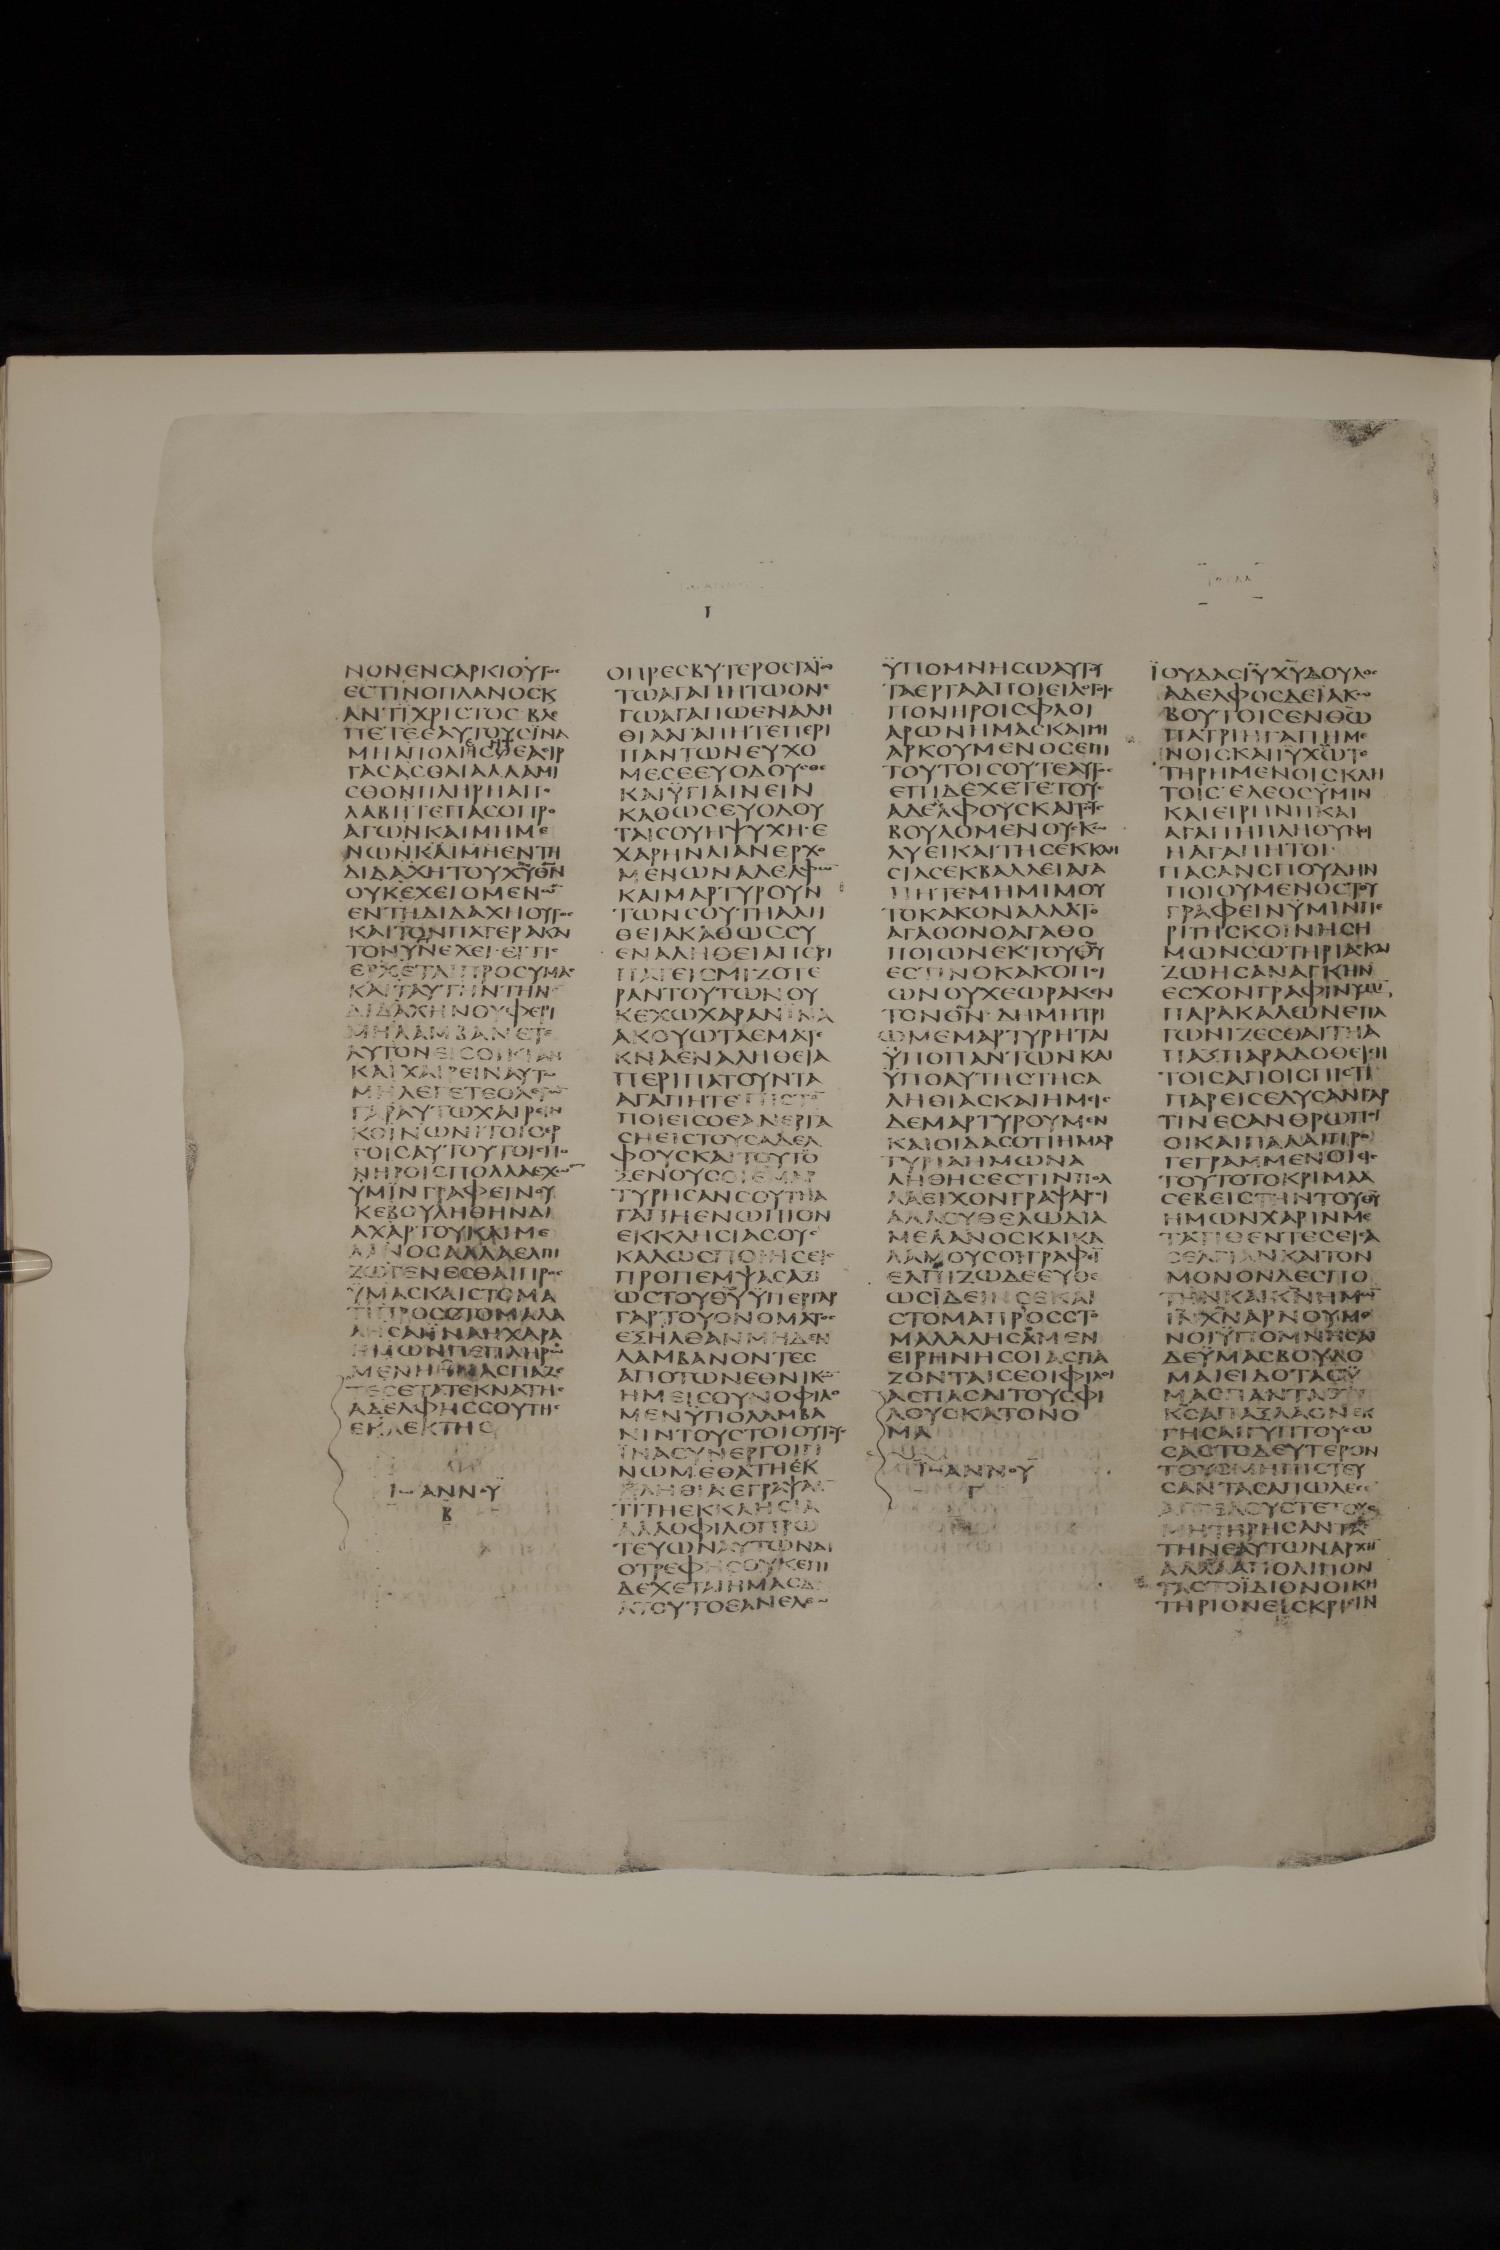 ΝΟΝΕΝϹΑΡΚΙΟΥΤΟϹ
ΕϹΤΙΝΟΠΛΑΝΟϹΚ
ΑΝΤΙΧΡΙϹΤΟϹΒΛΕ
ΠΕΤΕΕΑΥΤΟΥϹΪΝΑ
ΓΑϹΑϹΘΑΙΑΛΛΑΜΙ
ϹΘΟΝΠΛΗΡΗΑΠΟ
ΛΑΒΗΤΕΠΑϹΟΠΡΟ
ΑΓΩΝΚΑΙΜΗΜΕ
ΝΩΝΚΑΙΜΗΕΝΤΗ
ΔΙΔΑΧΗΤΟΥΧΥΘΝ
ΟΥΚΕΧΕΙΟΜΕΝΩΝ
ΕΝΤΗΔΙΔΑΧΗΟΥΤΟϹ
ΚΑΙΤΟΝΠΑΤΕΡΑΚΑΙ
ΤΟΝΥΝΕΧΕΙΕΙΤΙϹ
ΕΡΧΕΤΑΙΠΡΟϹΥΜΑϹ
ΚΑΙΤΑΥΤΗΝΤΗΝ
ΔΙΔΑΧΗΝΟΥΦΕΡΙ
ΜΗΛΑΜΒΑΝΕΤΕ
ΑΥΤΟΝΕΙϹΟΙΚΙΑΝ
ΚΑΙΧΑΙΡΕΙΝΑΥΤΩ
ΜΗΛΕΓΕΤΕΟΛΕΓΩΝ
ΓΑΡΑΥΤΩΧΑΙΡΕΙΝ
ΚΟΙΝΩΝΙΤΟΙϹΕΡ
ΤΟΙϹΑΥΤΟΥΤΟΙϹΠΟ
ΝΗΡΟΙϹΠΟΛΛΑΕΧΩΝ
ΥΜΙΝΓΡΑΦΕΙΝΟΥ
ΚΕΒΟΥΛΗΘΗΝΔΙ
ΑΧΑΡΤΟΥΚΑΙΜΕ
ΛΑΝΟϹΑΛΛΑΕΛΠΙ
ΖΩΓΕΝΕϹΘΑΙΠΡΟϹ
ΫΜΑϹΚΑΙϹΤΟΜΑ
ΤΙΠΡΟϹϹΤΟΜΑΛΑ
ΛΗϹΑΙΪΝΑΗΧΑΡΑ
ΗΜΩΝΠΕΠΛΗΡΩ
ΜΕΝΗΗΝΑϹΠΑΖΟ
ΤΕϹΕΤΑΤΕΚΝΑΤΗϹ
ΑΔΕΛΦΗϹϹΟΥΤΗϹ
ΕΚΛΕΚΤΗϹ
ΙΩΑΝΝΟΥ
Β
Γ
ΟΠΡΕϹΒΥΤΕΡΟϹΓΑΪΩ
ΤΩΑΓΑΠΗΤΩΟΝΕ
ΓΩΑΓΑΠΩΕΝΑΛΗ
ΘΙΑΑΓΑΠΗΤΕΠΕΡΙ
ΠΑΝΤΩΝΕΥΧΟ
ΜΕϹΕΕΥΟΔΟΥϹΘΕ
ΚΑΙΫΓΙΑΙΝΕΙΝ
ΚΑΘΩϹΕΥΟΔΟΥ
ΤΑΙϹΟΥΗΨΥΧΗΕ
ΧΑΡΗΝΛΙΑΝΕΡΧΟ
ΜΕΝΩΝΑΔΕΛΦΩΝ
ΚΑΙΜΑΡΤΥΡΟΥΝ
ΤΩΝϹΟΥΤΗΑΛΗ
ΘΕΙΑΚΑΘΩϹϹΥ
ΕΝΑΛΗΘΕΙΑΠΕΡΙ
ΠΑΤΕΙϹΜΙΖΟΤΕ
ΡΑΝΤΟΥΤΩΝΟΥ
ΚΕΧΩΧΑΡΑΝΪΝΑ
ΑΚΟΥΩΤΑΕΜΑΤΕ
ΚΝΑΕΝΑΛΗΘΕΙΑ
ΠΕΡΙΠΑΤΟΥΝΤΑ
ΑΓΑΠΗΤΕΠΙϹΤΟ
ΠΟΙΕΙϹΟΕΑΝΕΡΓΑ
ϹΗΕΙϹΤΟΥϹΑΔΕΛ
ΦΟΥϹΚΑΙΤΟΥΤΟ
ΞΕΝΟΥϹΟΙΕΜΑΡ
ΤΥΡΗϹΑΝϹΟΥΤΗΑ
ΓΑΠΗΕΝΩΠΙΟΝ
ΕΚΚΛΗϹΙΑϹΟΥϹ
ΚΑΛΩϹΠΟΙΗϹΕΙϹ
ΠΡΟΠΕΜΨΑϹΑΞΙ
ΩϹΤΟΥΘΥΫΠΕΡΓΑΡ
ΓΑΡΤΟΥΟΝΟΜΑΤΟϹ
ΕΞΗΛΘΑΝΜΗΔΕΝ
ΛΑΜΒΑΝΟΝΤΕϹ
ΑΠΟΤΩΝΕΘΝΙΚΩΝ
ΗΜΕΙϹΟΥΝΟΦΙΛΟ
ΜΕΝΫΠΟΛΑΜΒΑ
ΝΙΝΤΟΥϹΤΟΙΟΥΤΟΥϹ
ΪΝΑϹΥΝΕΡΓΟΙΓΙ
ΝΩΜΕΘΑΤΗΕΚ
ΑΛΗΘΙΑΕΓΡΑΨΑϹ
ΤΙΤΗΕΚΚΛΗϹΙΑ
ΑΛΛΟΦΙΛΟΠΡΩ
ΤΕΥΩΝΑΥΤΩΝΔΙ
ΟΤΡΕΦΗϹΟΥΚΕΠΙ
ΔΕΧΕΤΑΙΗΜΑϹΔΙ
ΑΤΟΥΤΟΕΑΝΕΛΘΩ
ΫΠΟΜΝΗϹΩΑΥΤΟΥ
ΤΑΕΡΓΑΑΠΟΙΕΙΛΟΓΟΙϹ
ΠΟΝΗΡΟΙϹΦΛΟΙ
ΑΡΩΝΗΜΑϹΚΑΙΜΗ
ΑΡΚΟΥΜΕΝΟϹΕΠΙ
ΤΟΥΤΟΙϹΟΥΤΕΑΥΤΟϹ
ΕΠΙΔΕΧΕΤΕΤΟΥϹ
ΑΔΕΛΦΟΥϹΚΑΙΤΟΥϹ
ΒΟΥΛΟΜΕΝΟΥϹΚΩ
ΛΥΕΙΚΑΙΤΗϹΕΚΚΛΗ
ϹΙΑϹΕΚΒΑΛΛΕΙΑΓΑ
ΠΗΤΕΜΗΜΙΜΟΥ
ΤΟΚΑΚΟΝΑΛΛΑΤΟ
ΑΓΑΘΟΝΟΑΓΑΘΟ
ΠΟΙΩΝΕΚΤΟΥΘΥ
ΕϹΤΙΝΟΚΑΚΟΠΟΙ
ΩΝΟΥΧΕΩΡΑΚΕΝ
ΤΟΝΘΝΔΗΜΗΤΡΙ
ΩΜΕΜΑΡΤΥΡΗΤΑΙ
ΫΠΟΠΑΝΤΩΝΚΑΙ
ΫΠΟΑΥΤΗϹΤΗϹΑ
ΛΗΘΙΑϹΚΑΙΗΜΕΙϹ
ΔΕΜΑΡΤΥΡΟΥΜΕΝ
ΚΑΙΟΙΔΑϹΟΤΙΗΜΑΡ
ΤΥΡΙΑΗΜΩΝΑ
ΛΗΘΗϹΕϹΤΙΝΠΟΛ
ΛΑΕΙΧΟΝΓΡΑΨΑΙϹΟΙ
ΑΛΛΟΥΘΕΛΩΔΙΑ
ΜΕΛΑΝΟϹΚΑΙΚΑ
ΛΑΜΟΥϹΟΙΓΡΑΦΙ
ΕΛΠΙΖΩΔΕΕΥΘΕ
ΩϹΪΔΕΙΝϹΕΚΑΙ
ϹΤΟΜΑΠΡΟϹϹΤΟ
ΜΑΛΑΛΗϹΑΜΕΝ
ΕΙΡΗΝΗϹΟΙΑϹΠΑ
ΖΟΝΤΑΙϹΕΟΙΦΙΛΟΙ
ΑϹΠΑϹΑΙΤΟΥϹΦΙ
ΛΟΥϹΚΑΤΟΝΟ
ΜΑ
ΙΩΑΝΝΟΥ
Γ
ΙΟΥΔΑ
ΪΟΥΔΑϹΙΥΧΥΔΟΥΛΟϹ
ΑΔΕΛΦΟϹΔΕΪΑΚΩ
ΒΟΥΤΟΙϹΕΝΘΩ
ΠΑΤΡΙΗΓΑΠΗΜΕ
ΝΟΙϹΚΑΙΙΥΧΩΤΕ
ΤΗΡΗΜΕΝΟΙϹΚΛΗ
ΤΟΙϹΕΛΕΟϹΥΜΙΝ
ΚΑΙΕΙΡΗΝΗΚΑΙ
ΑΓΑΠΗΠΛΗΘΥΝΘΙ
ΗΑΓΑΠΗΤΟΙ
ΠΑϹΑΝϹΠΟΥΔΗΝ
ΠΟΙΟΥΜΕΝΟϹΤΟΥ
ΓΡΑΦΕΙΝΥΜΙΝΠΕ
ΡΙΤΗϹΚΟΙΝΗϹΗ
ΜΩΝϹΩΤΗΡΙΑϹΚΑΙ
ΖΩΗϹΑΝΑΓΚΗΝ
ΕϹΧΟΝΓΡΑΦΙΝΥΜΙΝ
ΠΑΡΑΚΑΛΩΝΕΠΑ
ΓΩΝΙΖΕϹΘΑΙΤΗΑ
ΠΑΞΠΑΡΑΔΟΘΕΙϹΗ
ΤΟΙϹΑΓΙΟΙϹΠΙϹΤΙ
ΠΑΡΕΙϹΕΔΥϹΑΝΓΑΡ
ΤΙΝΕϹΑΝΘΡΩΠΟΙ
ΟΙΚΑΙΠΑΛΑΙΠΡΟ
ΓΕΓΡΑΜΜΕΝΟΙΕΙϹ
ΤΟΥΤΟΤΟΚΡΙΜΑΑ
ϹΕΒΕΙϹΤΗΝΤΟΥΘΥ
ΗΜΩΝΧΑΡΙΝΜΕ
ΤΑΤΙΘΕΝΤΕϹΕΙϹΑ
ϹΕΛΓΙΑΝΚΑΙΤΟΝ
ΜΟΝΟΝΔΕϹΠΟ
ΤΗΝΚΑΙΚΝΗΜΩΝ
ΙΝΧΝΑΡΝΟΥΜΕ
ΝΟΙΫΠΟΜΝΗϹΑΙ
ΔΕΫΜΑϹΒΟΥΛΟ
ΜΑΙΕΙΔΟΤΑϹΫ
ΜΑϹΠΑΝΤΑΟΤΙ
ΚϹΑΠΑΞΛΑΟΝΕΚ
ΓΗϹΑΙΓΥΠΤΟΥϹΩ
ϹΑϹΤΟΔΕΥΤΕΡΟΝ
ΤΟΥϹΜΗΠΙϹΤΕΥ
ϹΑΝΤΑϹΑΠΩΛΕϹΕ
ΑΓΓΕΛΟΥϹΤΕΤΟΥϹ
ΜΗΤΗΡΗϹΑΝΤΑϹ
ΤΗΝΕΑΥΤΩΝΑΡΧΗ
ΑΛΛΑΑΠΟΛΙΠΟΝ
ΤΑϹΤΟΪΔΙΟΝΟΙΚΗ
ΤΗΡΙΟΝΕΙϹΚΡΙϹΙΝ